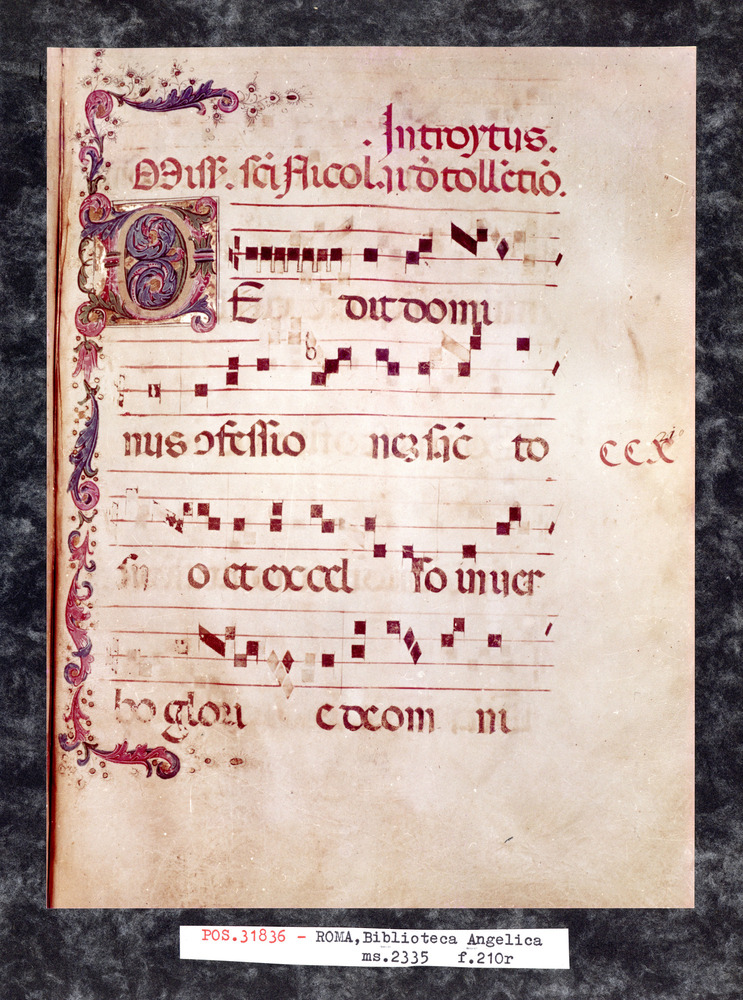 . Introytus.
Miss. sci Nicol. ii d tollectio.
DE dit domi
nus ɔfessio nez suā to
CCXi
su o et excel so in uer
bo glori e decom ni
POS.31836 - ROMA,Biblioteca Angelica
ms.2335 f.210r